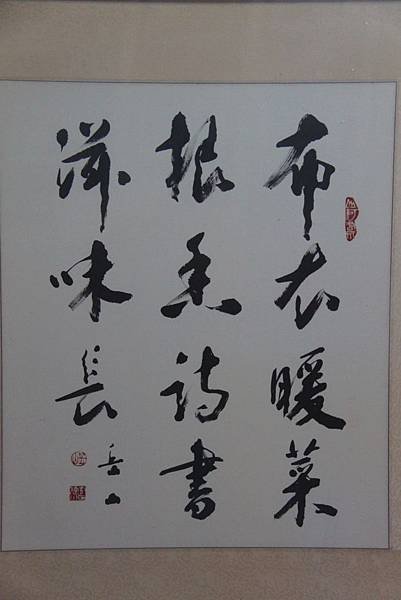 布衣暖菜
根香詩書
滋味長
岳山